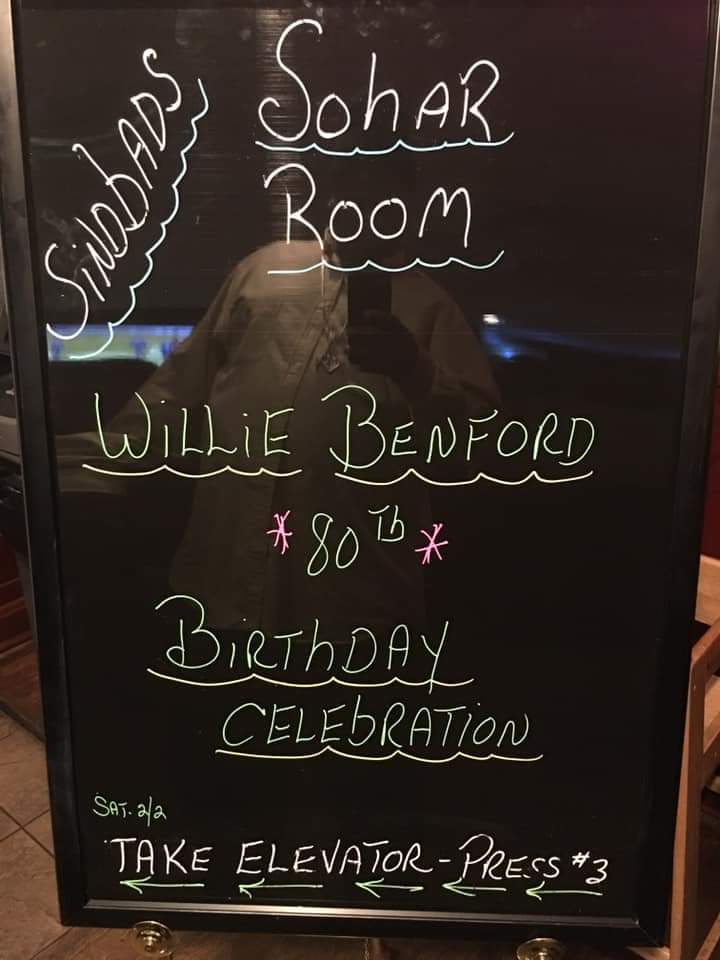 SiNDbADS
SohAR
ROOM
WiLLiE BENFORD
*80Th*
BiRThDAY
CELEbRATiON
SAT. 2/2
TAKE ELEVATOR-PRESS #3